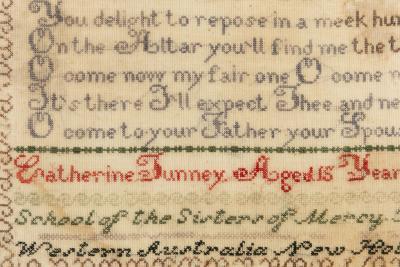 You delight to repose in a meek hum
On the Altar you'll find me the t
O come now my fair one O come n
It's there I'll expect Thee and ne
O come to your Father your Spou
Catherine Tunney. Aged 15 Year
School of the Sisters of Mercy
Western Australia New Hol